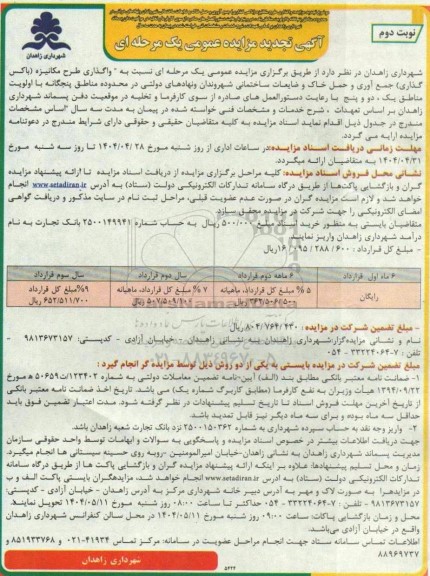 نوبت دوم
آگهی تجدید مزایده عمومی یک مرحله ای
شهرداری زاهدان
شهرداری زاهدان در نظر دارد از طریق برگزاری مزایده عمومی یک مرحله ای نسبت به " واگذاری طرح مکانیزه (باکس
گذاری) جمع آوری و حمل خاک و ضایعات ساختمانی شهروندان ونهادهای دولتی در محدوده مناطق پنجگانه با اولویت
مناطق یک ، دو و پنج با رعایت دستورالعمل های صادره از سوی کارفرما و تخلیه در موقعیت دفن پسماند شهرداری
زاهدان بر اساس تعهدات ، شرح خدمات و مشخصات فنی خواسته شده در پیمان به مدت سه سال "اساس مشخصات
مندرج در جدول ذیل اقدام نماید اسناد مزایده به کلیه متقاضیان حقیقی و حقوقی دارای شرایط مندرج در دعوتنامه
مزایده ارایه می گردد.
مهلت زمانی دریافت اسناد مزایده: در ساعات اداری از روز شنبه مورخ ۱۴۰۴/۰۴/۲۸ تا روز سه شنبه مورخ
۱۴۰۴/۰۴/۳۱ به متقاضیان ارائه میگردد.
نشانی محل فروش اسناد مزایده: کلیه مراحل برگزاری مزایده از دریافت اسناد مزایده تا ارائه پیشنهاد مزایده
گران و بازگشایی پاکت‌ها از طریق درگاه سامانه تدارکات الکترونیکی دولت (ستاد) به آدرس www.setadiran.ir انجام
خواهد شد و لازم است مزایده گران در صورت عدم عضویت قبلی، مراحل ثبت نام در سایت مذکور و دریافت گواهی
امضای الکترونیکی را جهت شرکت در مزایده محقق سازد
متقاضیان بایستی به منظور خرید اسناد مبلغ ۵۰۰/۰۰۰ ریال به حساب شماره ۲۵۰۰۱۴۹۹۴۱ بانک تجارت به نام
درآمد شهرداری زاهدان واریز نمایند
- مبلغ کل قرارداد : ۶۰۰ / ۲۸۸ / ۰۹۵ / ۱۶ ریال
۶ ماه اول قرارداد
۶ ماهه دوم قرارداد
سال دوم قرارداد
سال سوم قرارداد
رایگان
۵ % مبلغ کل قرارداد، ماهیانه
۷ % مبلغ کل قرارداد، ماهیانه
۹% مبلغ کل قرارداد
۶۵۲/۵۱۱/۷۰۰ ریال
- مبلغ تضمین شرکت در مزایده : ۸۰۴/۷۶۴/۴۳۰ ریال
نام و نشانی مزایده‌گزار: شهرداری زاهدان به نشانی زاهدان - خیابان آزادی - کدپستی: ۹۸۱۳۶۷۳۱۵۷ -
تلفن : ۷-۳۳۲۲۴۰۶۴ - ۰۵۴
مبلغ تضمین شرکت در مزایده بایستی به یکی از دو روش ذیل توسط مزایده گر انجام گیرد :
۱- ضمانت نامه معتبر بانکی مطابق بند (الف) آیین‌نامه تضمین معاملات دولتی به شماره ۱۲۳۴۰۲/ت۵۰۶۵۹ ه مورخ
۱۳۹۴/۰۹/۲۲ هیأت وزیران به نفع کارفرما (مطابق کاربرگ شماره یک) می باشد. تاریخ اخذ ضمانت نامه معتبر بانکی
از تاریخ آخرین مهلت فروش اسناد تا تاریخ تسلیم پیشنهادات در نظر گرفته شود. مدت اعتبار تضمین فوق باید
حداقل سه ماه بوده و برای سه ماه دیگر نیز قابل تمدید باشد.
۲- واریز وجه نقد به حساب سپرده شهرداری به شماره ۲۵۰۰۱۵۰۳۶۲ نزد بانک تجارت شعبه زاهدان باشد.
جهت دریافت اطلاعات بیشتر در خصوص اسناد مزایده و پاسخگویی به سوالات و ابهامات توسط واحد حقوقی سازمان
مدیریت پسماند شهرداری زاهدان به نشانی زاهدان-خیابان امیرالمومنین -روبه روی حسینیه سیستانی ها انجام میگیرد.
زمان و محل تسلیم پیشنهادها: علاوه بر اینکه ارائه پیشنهاد مزایده گران و بازگشایی پاکت ها از طریق درگاه سامانه
تدارکات الکترونیکی دولت (ستاد) به آدرس www.setadiran.ir انجام خواهد شد، مزایده‌گران بایستی پاکت الف و ب
در مزایده‌را به صورت لاک و مهر به آدرس دبیر خانه شهرداری مرکز به آدرس زاهدان - خیابان آزادی - کدپستی:
۹۸۱۳۶۷۳۱۵۷ - تلفن : ۷-۳۳۲۲۴۰۶۴ - ۰۵۴ حداکثر تا ساعت ۰۸:۰۰ روز شنبه مورخ ۱۴۰۴/۰۵/۱۱ تحویل نمایند.
محل و زمان بازگشایی پاکات: ساعت ۰۹:۰۰ روز شنبه مورخ ۱۴۰۴/۰۵/۱۱ در محل سالن کنفرانس شهرداری زاهدان
واقع در خیابان آزادی می‌باشد.
اطلاعات تماس سامانه ستاد جهت انجام مراحل عضویت در سامانه: مرکز تماس ۴۱۹۳۴-۰۲۱ و ۸۵۱۹۳۳۷۶۸ و
۸۸۹۶۹۷۳۷
شهرداری زاهدان
۵۴۴۴